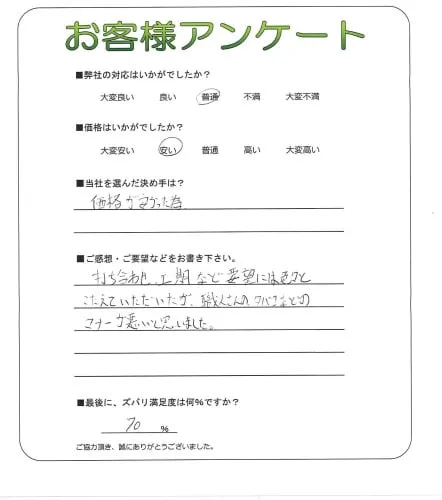 お客様アンケート
■弊社の対応はいかがでしたか?
大変良い 良い 普通 不満 大変不満
■価格はいかがでしたか?
大変安い 安い 普通 高い 大変高い
■当社を選んだ決め手は?
価格が安かった為
■ご感想・ご要望などをお書き下さい。
打ち合わせ、工期など要望には
こたえていただいたが、職人さんのタバコなどの
マナーが悪いと思いました。
■最後に、ズバリ満足度は何%ですか?
70 %
ご協力頂き、誠にありがとうございました。